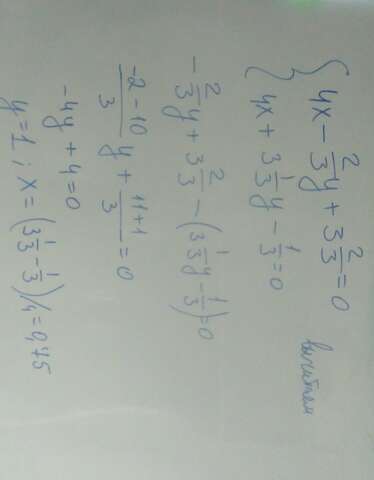 { 4x - 2/3 y + 3 2/3 = 0
{ 4x + 3 1/3 y - 1/3 = 0 вычитаем
- 2/3 y + 3 2/3 - (3 1/3 y - 1/3) = 0
(-2 - 10)/3 y + (11+1)/3 = 0
-4y + 4 = 0
y = 1; x = (3 1/3 - 1/3)/4 = 0,75